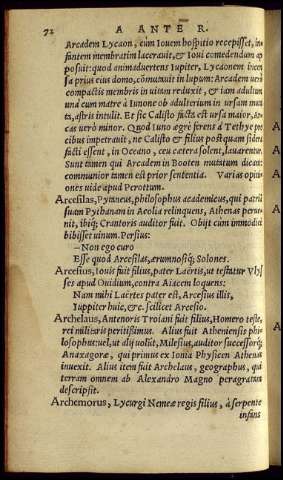 72 A ANTE R.
Arcadem Lycaon, cùm Iouem hospitio recepisset, in-
fantem membratim lacerauit, & Ioui comedendum ap
posuit: quod animaduertens Iupiter, Lycaonem incen
sa prius eius domo, cōmutauit in lupum: Arcadem uerò
compactis membris in uitam reduxit, & iam adultum
unà cum matre à Iunone ob adulterium in ursam muta
ta, astris intulit. Et sic Calisto facta est ursa maior, Ar-
cas uerò minor. Quod Iuno ægrè ferens à Tethye pre
cibus impetrauit, ne Calisto & filius postquam sidera
facti essent, in Oceano, ceu cætera solent, lauarentur.
Sunt tamen qui Arcadem in Booten mutatum dicant:
communior tamen est prior sententia. Varias opini-
ones uide apud Perottum.
Arcesilas, Pytaneus, philosophus academicus, qui patriā
suam Pythanam in Aeolia relinquens, Athenas peruc-
nit, ibiq; Crantoris auditor fuit. Obijt cùm immodicè
bibisset uinum. Persius:
— Non ego curo
Esse quod Arcesilas, ærumnosiq; Solones.
Arcesius, Iouis fuit filius, pater Laërtis, ut testatur Vlys
ses apud Ouidium, contra Aiacem loquens:
Nam mihi Laërtes pater est, Arcesius illi,
Iuppiter huic, &c. scilicet Arcesio.
Archelaus, Antenoris Troiani fuit filius, Homero teste,
rei militaris peritissimus. Alius fuit Atheniensis phi-
losophus: uel, ut alij uolūt, Milesius, auditor successorq;
Anaxagoræ, qui primus ex Ionia Physicen Athenas
inuexit. Alius item fuit Archelaus, geographus, qui
terram omnem ab Alexandro Magno peragratam
descripsit.
Archemorus, Lycurgi Nemeæ regis filius, à serpente
infans